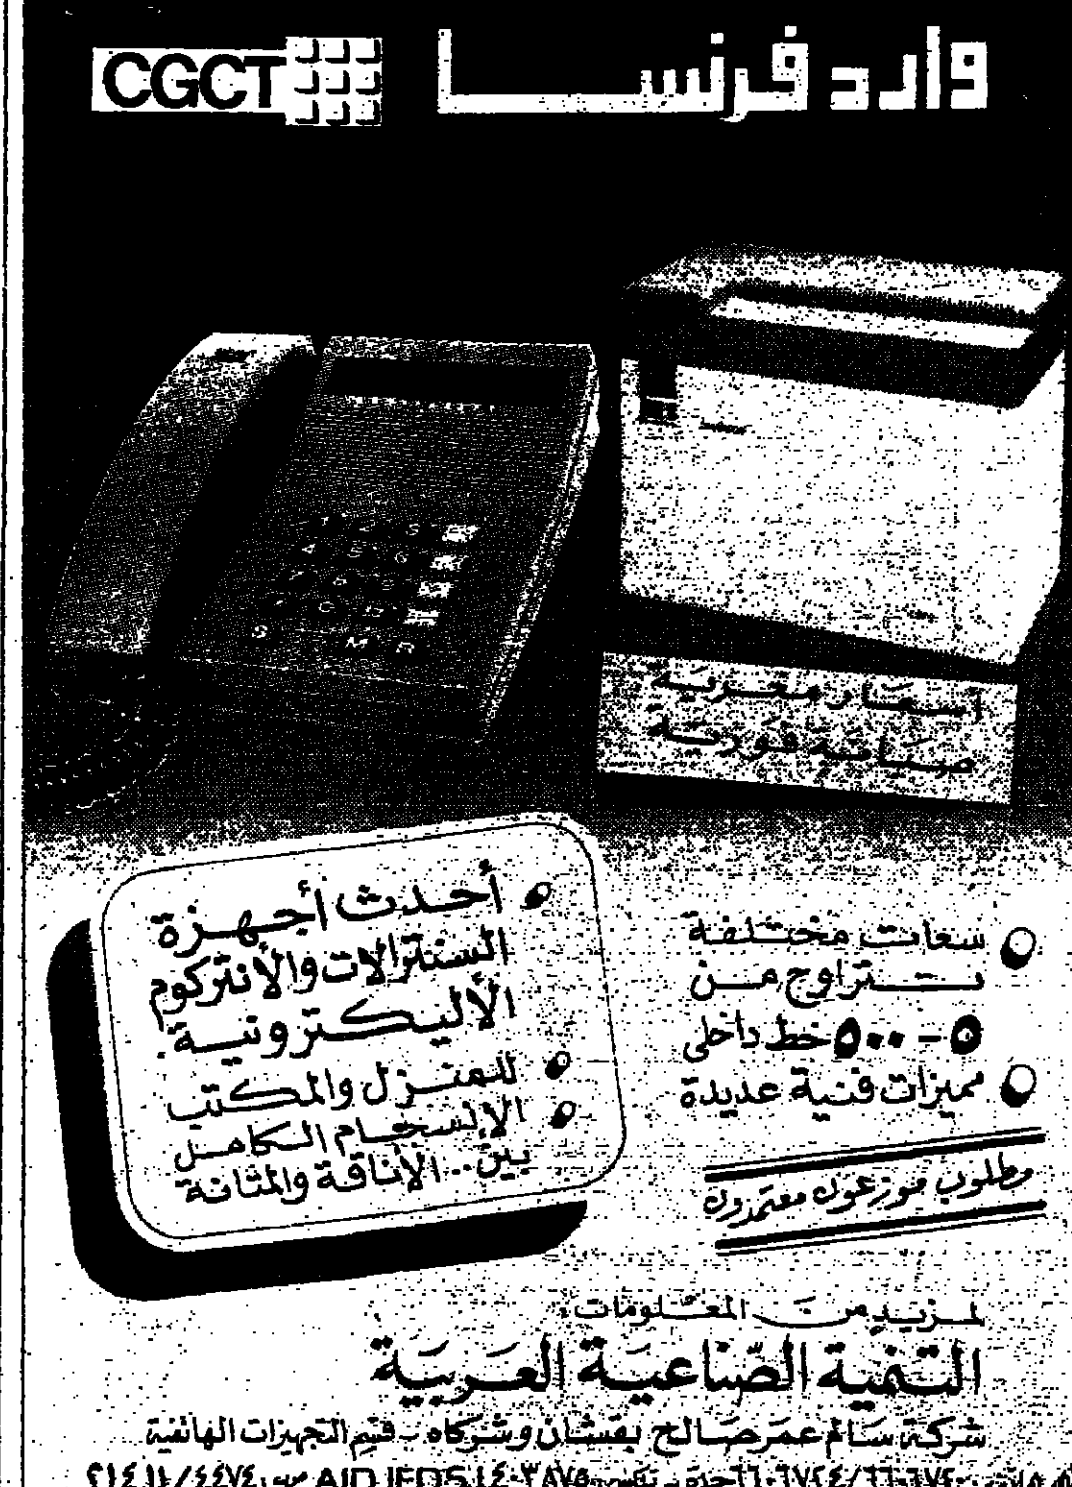 وارد فرنسا
CGCT
أسعار مغرية
صيانة فورية
أحدث أجهزة
السنترالات والأنتركوم
الأليكترونية.
للمنزل والمكتب
الإنسجام الكامل
بين.. الأناقة والمتانة
سعات مختلفة
تتراوح من
٥ - ٥٠٠ خط داخلي
مميزات فنية عديدة
مطلوب موزعون معتمدون
لمزيد من المعلومات:
التنمية الصناعية العربية
شركة سالم عمر صالح بقشان وشركاه - قسم التجهيزات الهاتفية